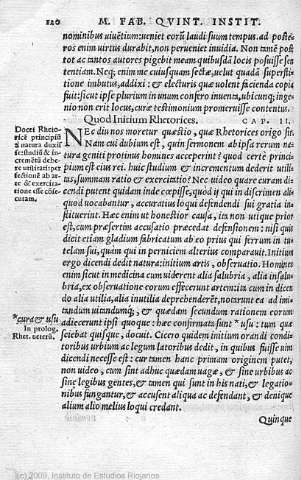 120 M. FAB. QVINT. INSTIT.
nominibus viuētium: veniet eorū laudi suum tempus. ad poste-
ros enim virtus durabit, non perueniet inuidia. Non tamē post
tot ac tantos autores pigebit meam quibusdā locis posuisse sen
tentiam. Neq; enim me cuiusquam sectæ, velut quadā supersti-
tione imbutus, addixi: & electuris quæ volent facienda copia
fuit: sicut ipse plurium in vnum confero inuenta, vbicunq; inge-
nio non erit locus, curæ testimonium promeruisse contentus.
Quod Initium Rhetorices. CAP. II.
Docet Rheto-
ricē principiū
à natura duxis-
se: studiū & in-
cremētū debe-
re vtilitati: per
fectionē ab ar-
te & exercita-
tione esse cōse-
cutam.
NEc diu nos moretur quæstio, quæ Rhetorices origo sit.
Nam cui dubium est, quin sermonem ab ipsa rerum na-
tura geniti protinus homines acceperint? quod certè princi-
pium est eius rei. huic studium & incrementum dederit vtili-
tas, summam ratio & exercitatio? Nec video quare curam di-
cendi putent quidam inde cœpisse, quòd ij qui in discrimen ali
quod vocabantur, accuratius loqui defendendi sui gratia in-
stituerint. Hæc enim vt honestior causa, ita non vtique prior
est, cum præsertim accusatio præcedat defensionem: nisi quis
dicit etiam gladium fabricatum ab eo prius qui ferrum in tu-
telam sui, quàm qui in perniciem alterius comparauit. Initium
ergo dicendi dedit natura: initium artis, obseruatio. Homines
enim sicut in medicina cum viderent alia salubria, alia insalu-
bria, ex obseruatione eorum effecerunt artem: ita cum in dicen
do alia vtilia, alia inutilia deprehenderēt, notarunt ea ad imi-
tandum vitandumq;, & quædam secundum rationem eorum
adiecerunt ipsi quoque: hæc confirmata sunt *vsu: tum quæ
*cura & vsu
sciebat quisque, docuit. Cicero quidem initium orandi condi-
In prolog.
Rhet. veterū.
toribus vrbium ac legum latoribus dedit, in quibus fuisse vim
dicendi necesse est: cur tamen hanc primam originem putet,
non video, cum sint adhuc quædam vagæ, & sine vrbibus ac
sine legibus gentes, & tamen qui sunt in his nati, & legatio-
nibus fungantur, & accusent aliqua ac defendant, & denique
alium alio melius loqui credant.
Quinque
(c) 2009, Instituto de Estudios Riojanos